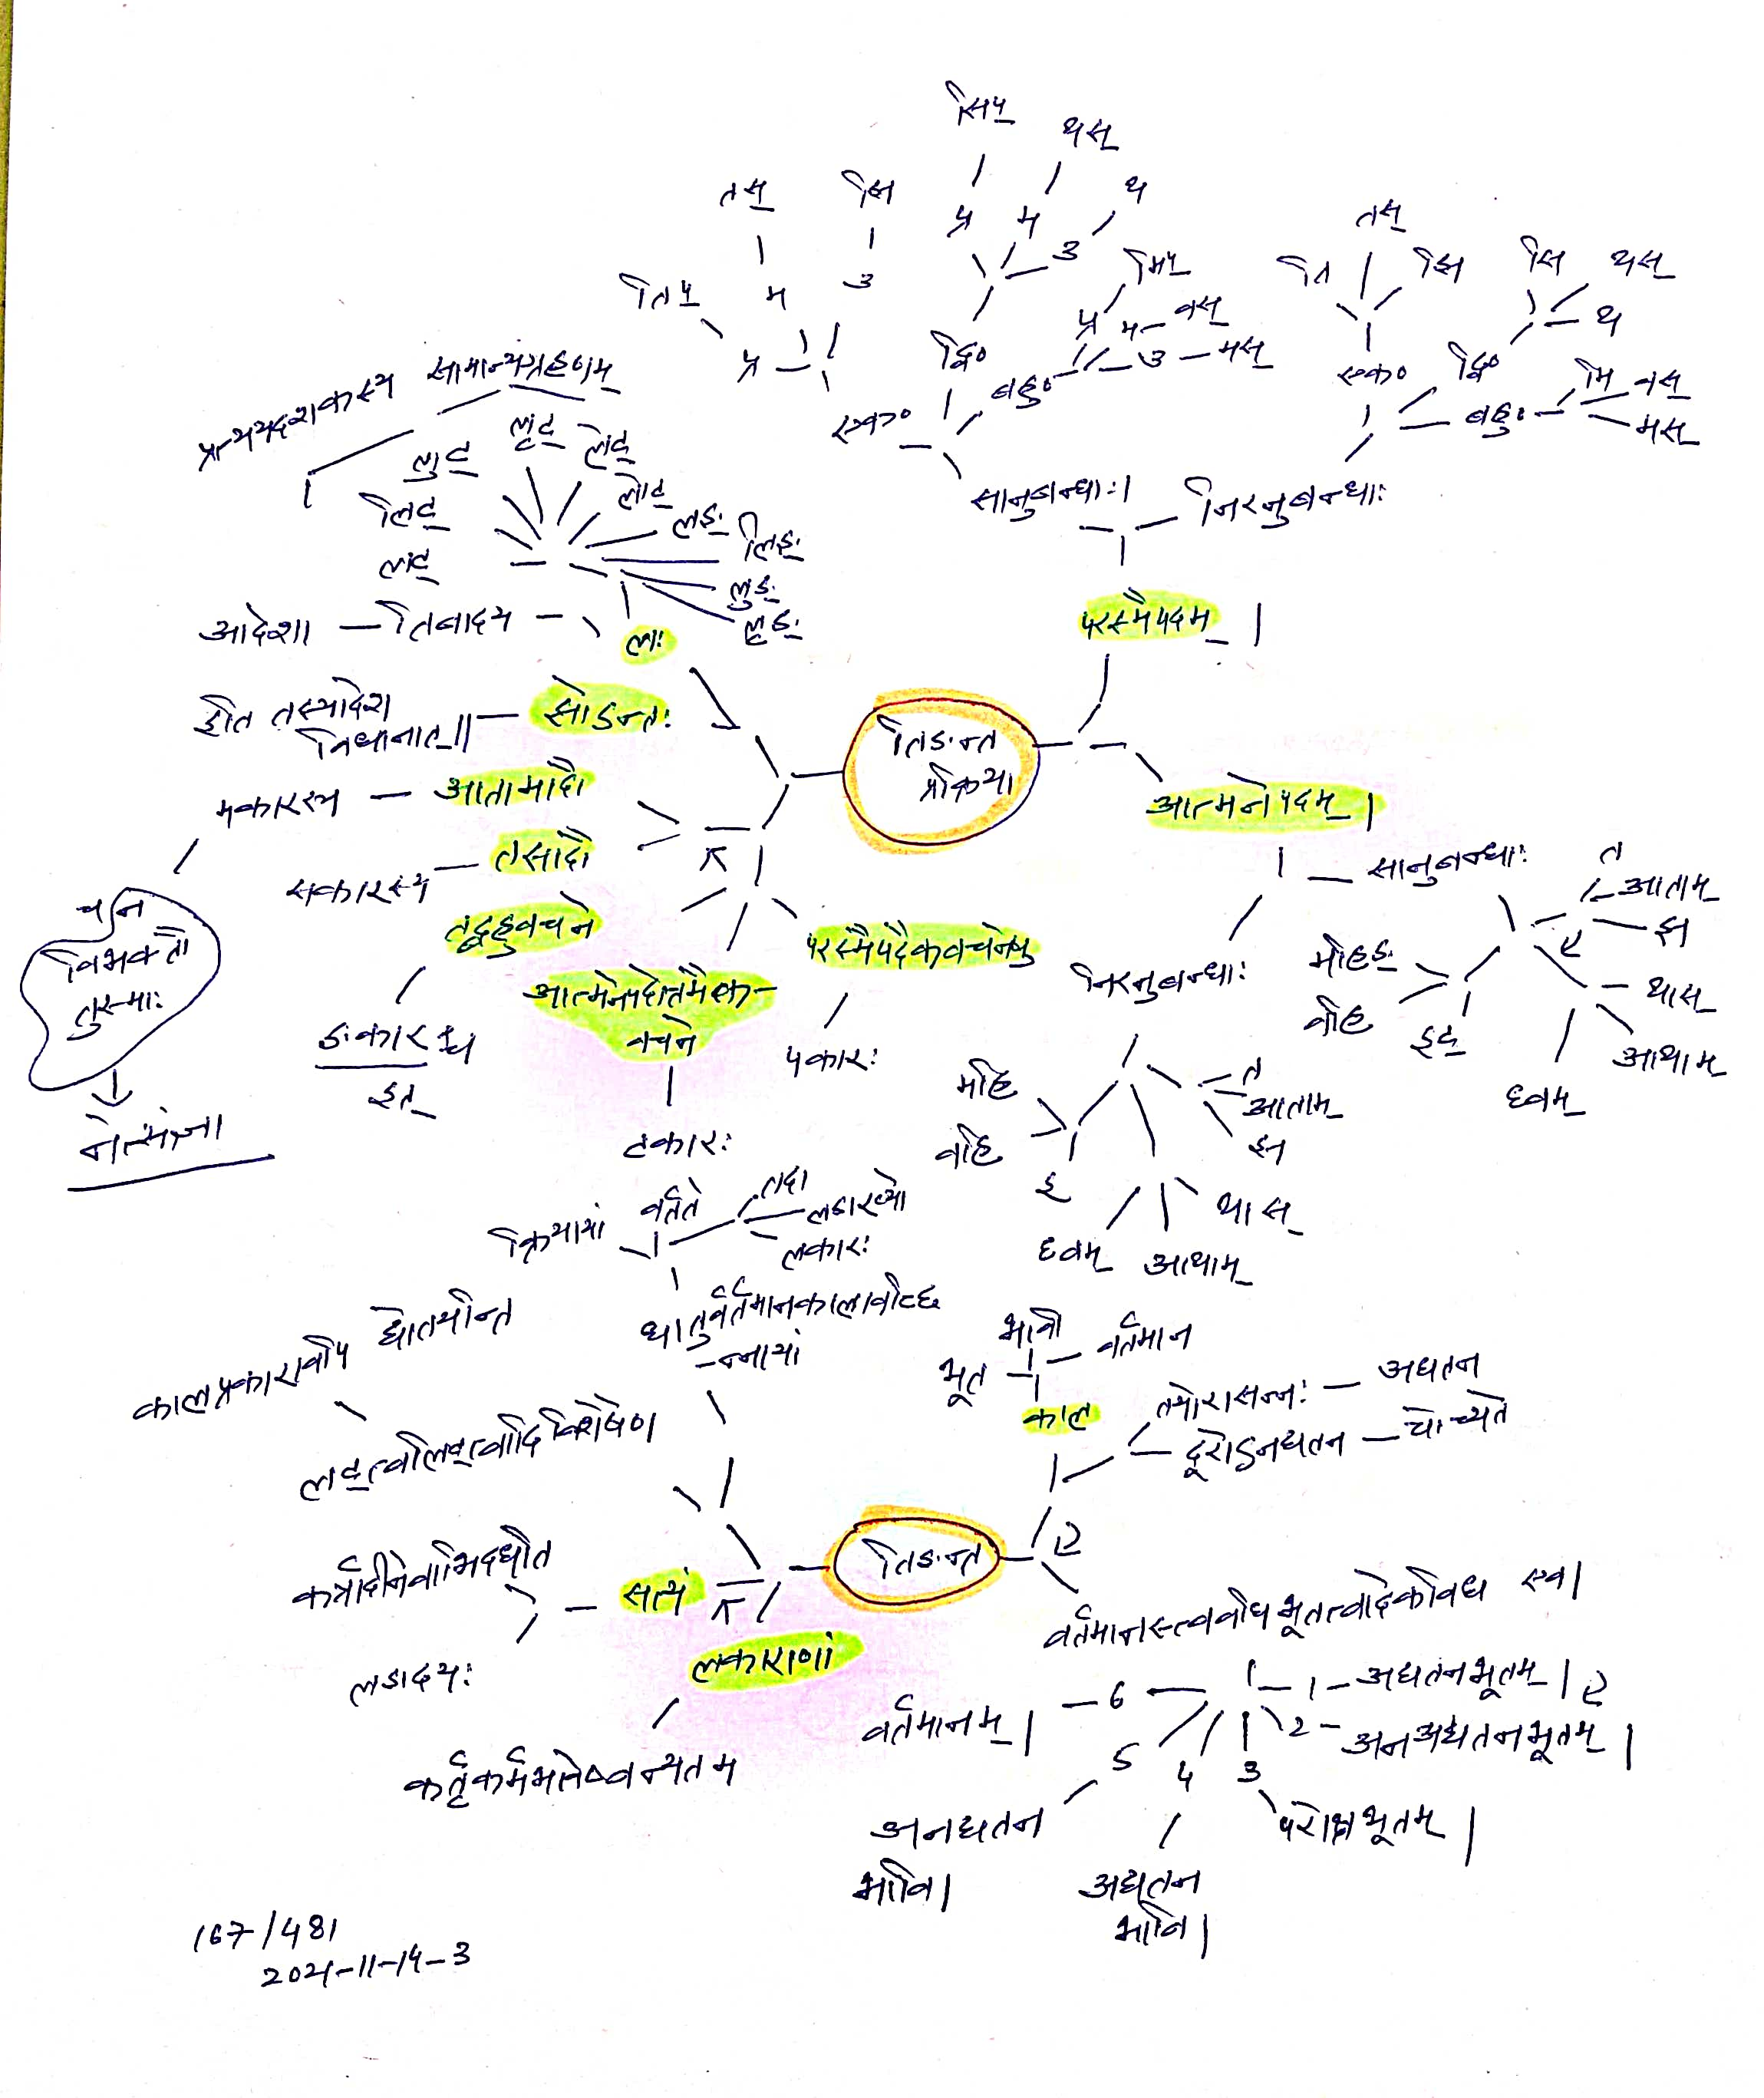 सिप्
थस्
तस्
झि
थ
प्र
म
उ
तिप्
म
उ
मिप्
प्र
म
वस्
उ
मस्
प्र
एक०
द्वि०
बहु०
तस्
ति
झि
सि
थस्
थ
एक०
द्वि०
बहु०
मि
वस्
मस्
सानुबन्धाः।
निरनुबन्धाः
प्रत्ययदशकस्य
सामान्यग्रहणम्
लृट्
लेट्
लुट्
लोट्
लिट्
लङ्
लिङ्
लट्
लुङ्
लृङ्
आदेशा
तिबादय
लः
परस्मैपदम् ।
इति तस्यादेश
विधानात् ॥
सोऽन्तः
तिङन्त
प्रक्रिया
मकारस्य
आतामादौ
आत्मनेपदम् ।
सकारस्य
तसादौ
सानुबन्धाः
त
आताम्
झ
महिङ्
वहि
इट्
थास्
आथाम्
ध्वम्
न
विभक्तौ
तुस्माः
नेत्संज्ञा
तद्बहुवचने
ङकारश्च
इत्
आत्मनेपदोत्तमैक-
वचने
टकारः
परस्मैपदैकवचनेषु
पकारः
निरनुबन्धाः
महि
वहि
इ
त
आताम्
झ
थास्
आथाम्
ध्वम्
क्रियायां
वर्तते
तदा
लडाख्यो
लकारः
धातुर्वर्तमानकालावच्छि
-न्नायां
कालप्रकाराविप
द्योतयन्ति
लट्त्वलिट्त्वादि विशेषेण
भावी
भूत
वर्तमान
काल
तयोरासन्नः
अद्यतन
दूरोऽनद्यतन
चोच्यते
कर्त्रादीनेवाभिदधति
सत्यं
तिङन्त
लडादयः
लकाराणां
कर्तृकर्मभावेष्वन्यतम
वर्तमानस्त्वविध
भूतत्वादेकविध
एव।
1
अद्यतनभूतम् ।
2
अनअद्यतनभूतम् ।
3
परोक्षभूतम् ।
4
अद्यतन
भावि।
5
अनद्यतन
भावि।
6
वर्तमानम् ।
167/481
2021-11-14-3